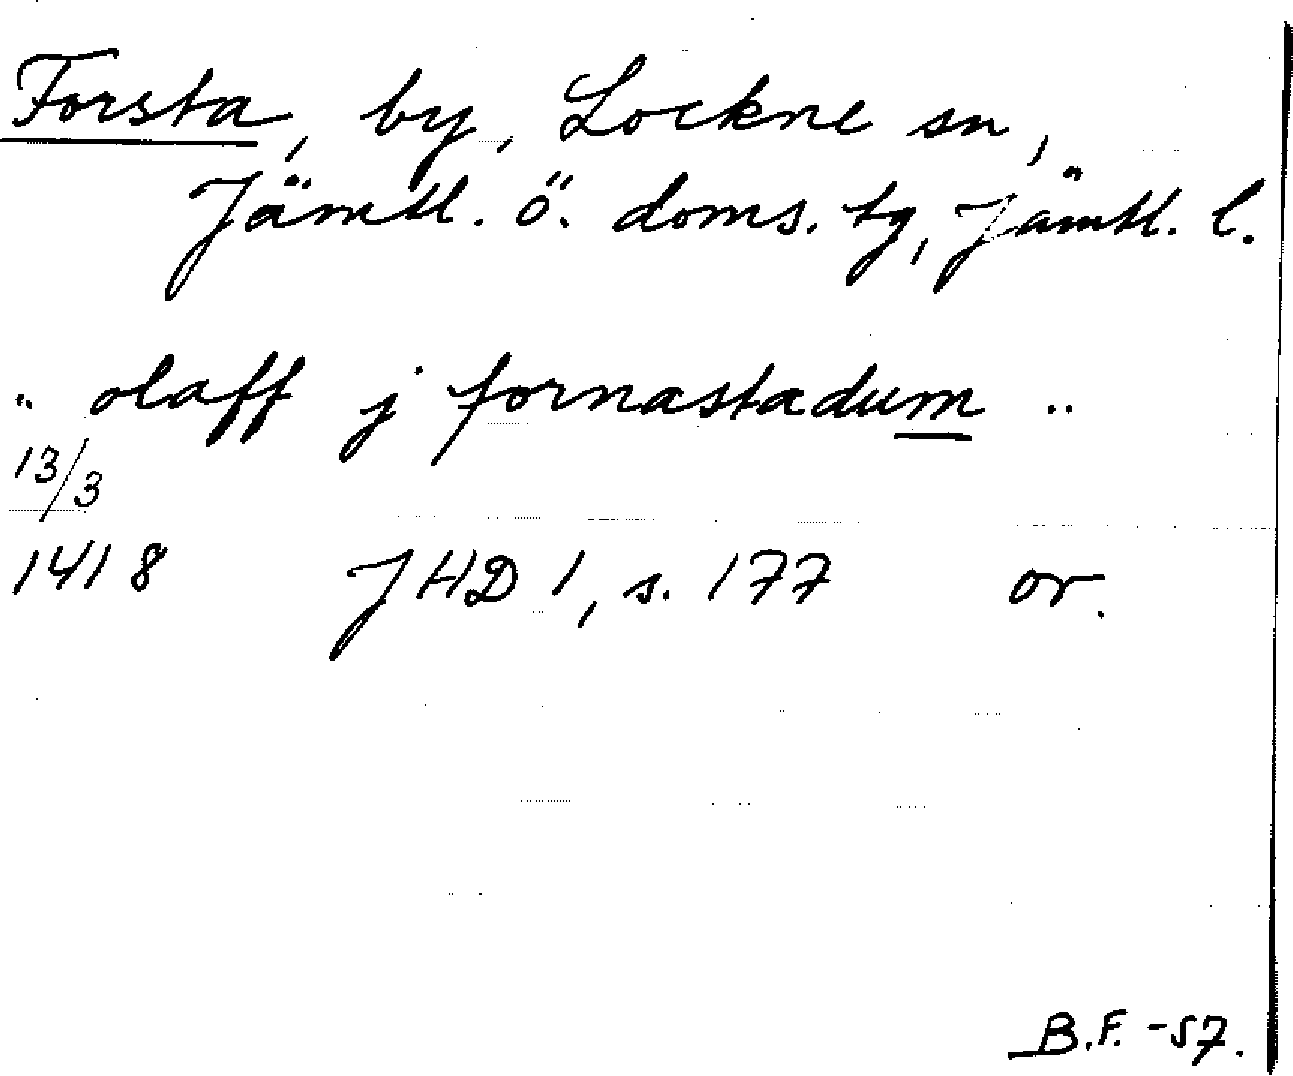 Forsta, by, Lockne sn,
Jämtl. ö. doms. tg, Jämtl. l.
.. olaff j fornastadum ..
13/3
1418 JHD 1, s. 177 or.
B.F. -57.